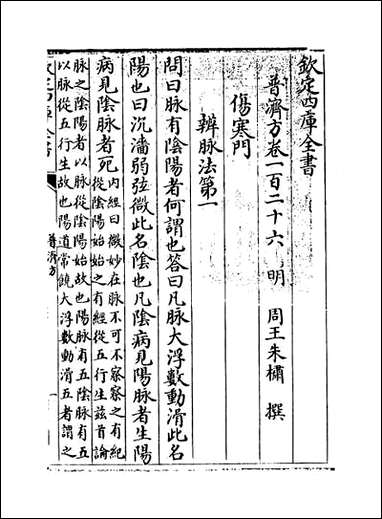 欽定四庫全書
普濟方卷一百二十六　明　周王朱橚　撰
傷寒門
辨脉法第一
問曰脉有陰陽者何謂也答曰凡脉大浮數動滑此名
陽也曰沉濇弱弦微此名陰也凡陰病見陽脉者生陽
病見陰脉者死内經曰微妙在脉不可不察察之有紀
從陰陽始始之有經從五行生兹首論
脉之陰陽者以脉從陰陽始故也陽脉有五陰脉有五
以脉從五行生故也陽道常饒大浮數動滑五者謂之
普濟方